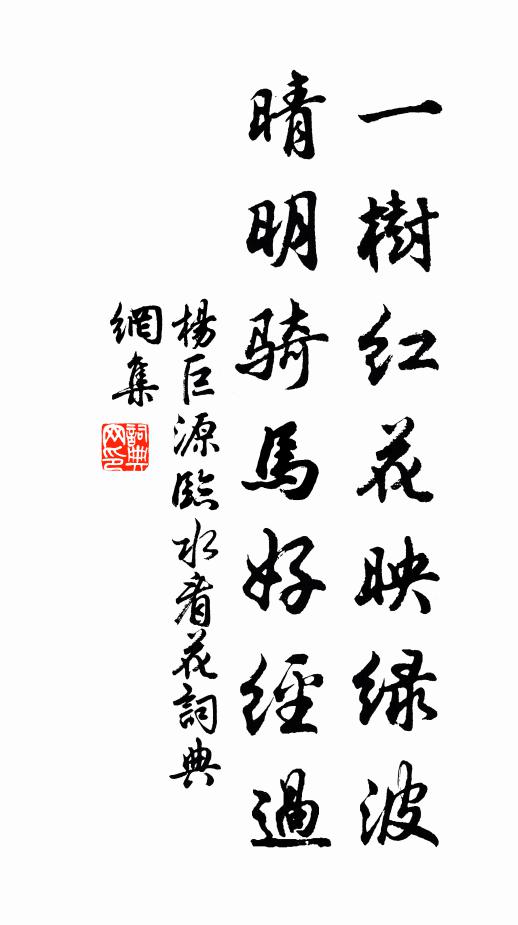 一樹紅花映緑波
晴明騎馬好經過
楊巨源臨水看花詞典
網集
詞典
网印